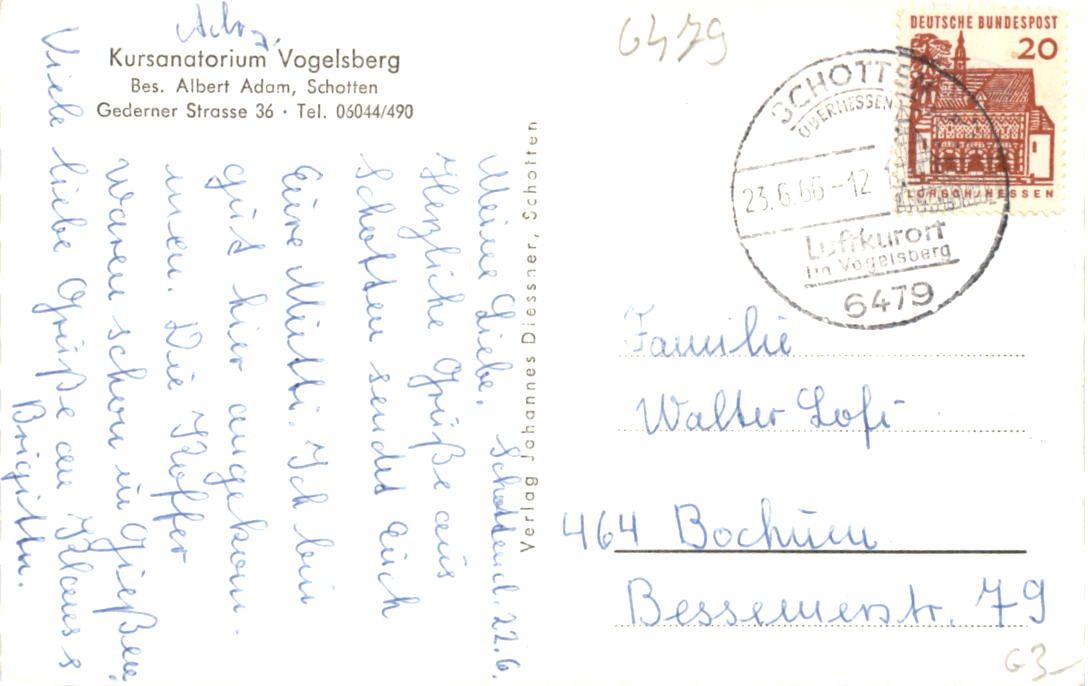 Adr.,
Kursanatorium Vogelsberg
Bes. Albert Adam, Schotten
Gederner Strasse 36 · Tel. 06044/490
Schotten d. 22.6.
Meine Liebe,
Herzliche Grüße aus
Schotten sendet Euch
Eure Mutti. Ich bin
gut hier angekom-
men. Die Koffer
waren schon in Gießen.
Viele liebe Grüße an Klaus
Brigitte.
Verlag Johannes Diessner, Schotten
6479
DEUTSCHE BUNDESPOST
20
LORSCH/HESSEN
SCHOTTEN
OBERHESSEN
23.6.66-12
Luftkurort
im Vogelsberg
6479
Familie
Walter
464 Bochum
Bessemerstr. 79
63